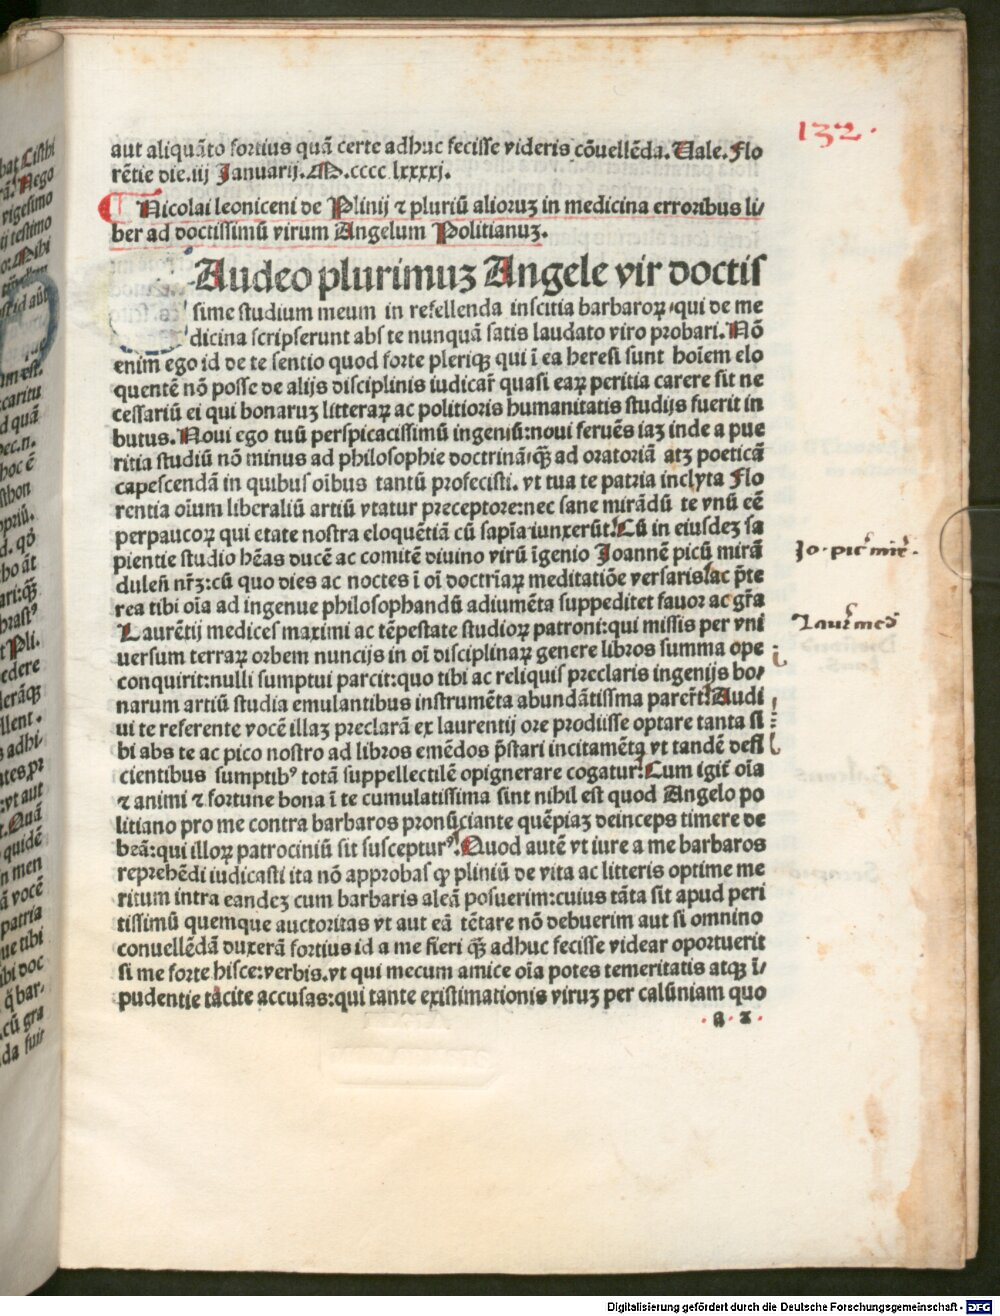 132.
aut aliquãto fortius quã certe adhuc fecisse videris cõuellẽda. Uale. Flo
rẽtie die .iij Januarij. M.cccc lxxxxj.
Nicolai leoniceni de Plinij ⁊ pluriũ alioruꝫ in medicina erroribus li/
ber ad doctissimũ virum Angelum Politianuꝫ.
Audeo plurimuꝫ Angele vir doctis
sime studium meum in refellenda inscitia barbaroꝝ qui de me
dicina scripserunt abs te nunquã satis laudato viro probari. Nõ
enim ego id de te sentio quod forte pleriqꝫ qui ĩ ea heresi sunt hoĩem elo
quentẽ nõ posse de alijs disciplinis iudicar̃ quasi eaꝝ peritia carere sit ne
cessariũ ei qui bonaruꝫ litteraꝝ ac politioris humanitatis studijs fuerit im
butus. Noui ego tuũ perspicacissimũ ingeniũ: noui feruẽs iaꝫ inde a pue
ritia studiũ nõ minus ad philosophie doctrinã qꝫ̃ ad oratoriã atꝫ poeticã
capescendã in quibus oĩbus tantũ profecisti. vt tua te patria inclyta Flo
rentia oĩum liberaliũ artiũ vtatur preceptore: nec sane mirãdũ te vnũ eẽ
perpaucoꝝ qui etate nostra eloquẽtiã cũ sapĩa iunxerũt. Cũ in eiusdeꝫ sa
pientie studio hẽas ducẽ ac comitẽ diuino virũ ĩgenio Joannẽ picũ mirã
dulẽn nr̃ꝫ: cũ quo dies ac noctes ĩ oĩ doctrĩaꝝ meditatiõe versaris: ac p̃te
rea tibi oĩa ad ingenue philosophandũ adiumẽta suppeditet fauor ac gr̃a
Laurẽtij medices maximi ac tẽpestate studioꝝ patroni: qui missis per vni
uersum terraꝝ orbem nuncijs in oĩ disciplinaꝝ genere libros summa ope
conquirit: nulli sumptui parcit: quo tibi ac reliquis preclaris ingenijs bo/
narum artiũ studia emulantibus instrumẽta abundãtissima parer̃t. Audi
ui te referente vocẽ illaꝫ preclarã ex laurentij ore prodiisse optare tanta si
bi abs te ac pico nostro ad libros emẽdos p̃stari incitamẽta vt tandẽ defi
cientibus sumptibꝰ totã suppellectilẽ opignerare cogatur. Cum igit̃ oĩa
⁊ animi ⁊ fortune bona ĩ te cumulatissima sint nihil est quod Angelo po
litiano pro me contra barbaros pronũciante quẽpiaꝫ deinceps timere de
beã: qui illoꝝ patrociniũ sit susceptur⁹. Quod autẽ vt iure a me barbaros
reprehẽdi iudicasti ita nõ approbas ꝙ pliniũ de vita ac litteris optime me
ritum intra eandeꝫ cum barbaris aleã posuerim: cuius tãta sit apud peri
tissimũ quemque auctoritas vt aut eã tẽtare nõ debuerim aut si omnino
conuellẽdã duxerã fortius id a me fieri qꝫ̃ adhuc fecisse videar oportuerit
si me forte hisce: verbis. vt qui mecum amice oĩa potes temeritatis atqꝫ ĩ/
pudentie tacite accusas: qui tante existimationis viruꝫ per calũniam quo
a 2
Jo. pic9 mir̃.
Laur9 med̃
Digitalisierung gefördert durch die Deutsche Forschungsgemeinschaft - DFG